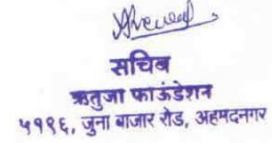 सचिव
ऋतुजा फाऊंडेशन
५१९६, जुना बाजार रोड, अहमदनगर